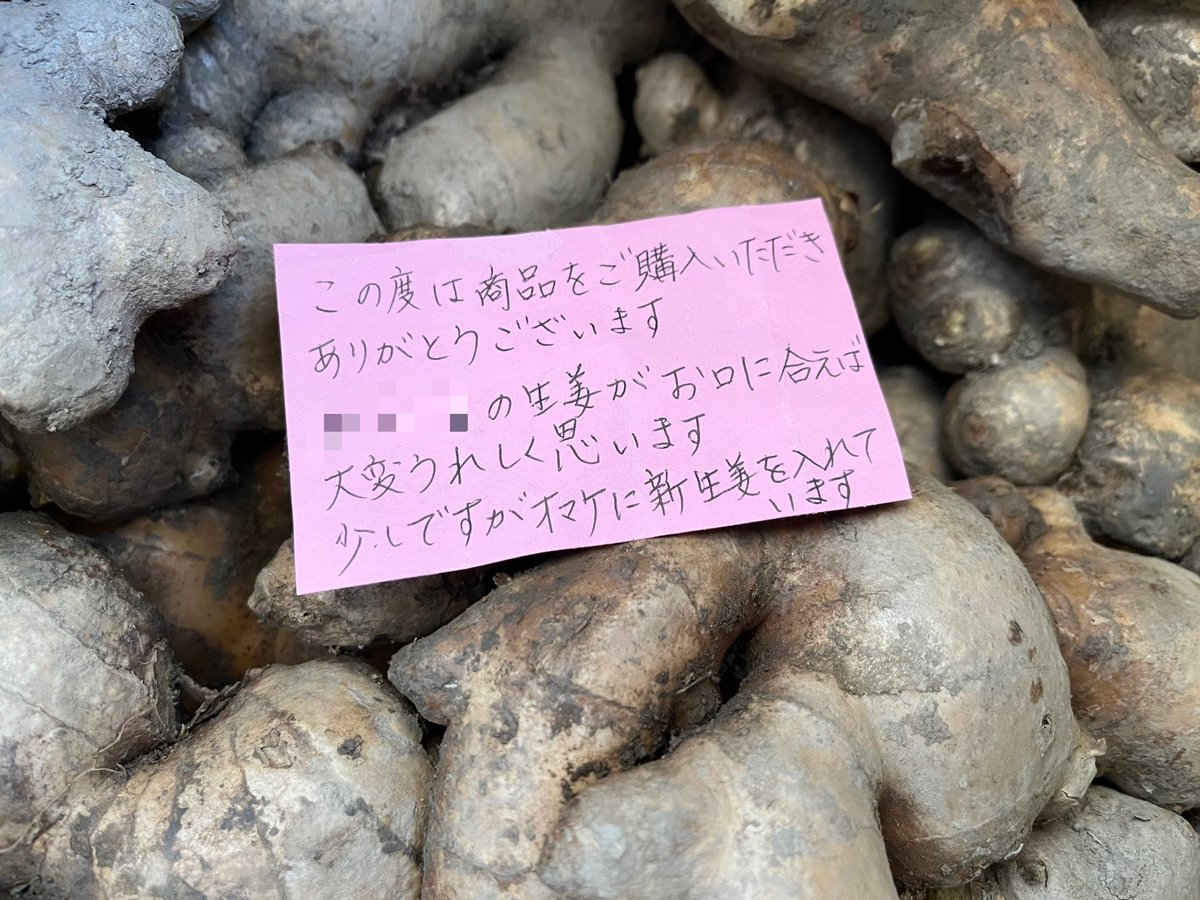 この度は商品をご購入いただき
ありがとうございます
の生姜がお口に合えば
大変うれしく思います
少しですがオマケに新生姜を入れて
います